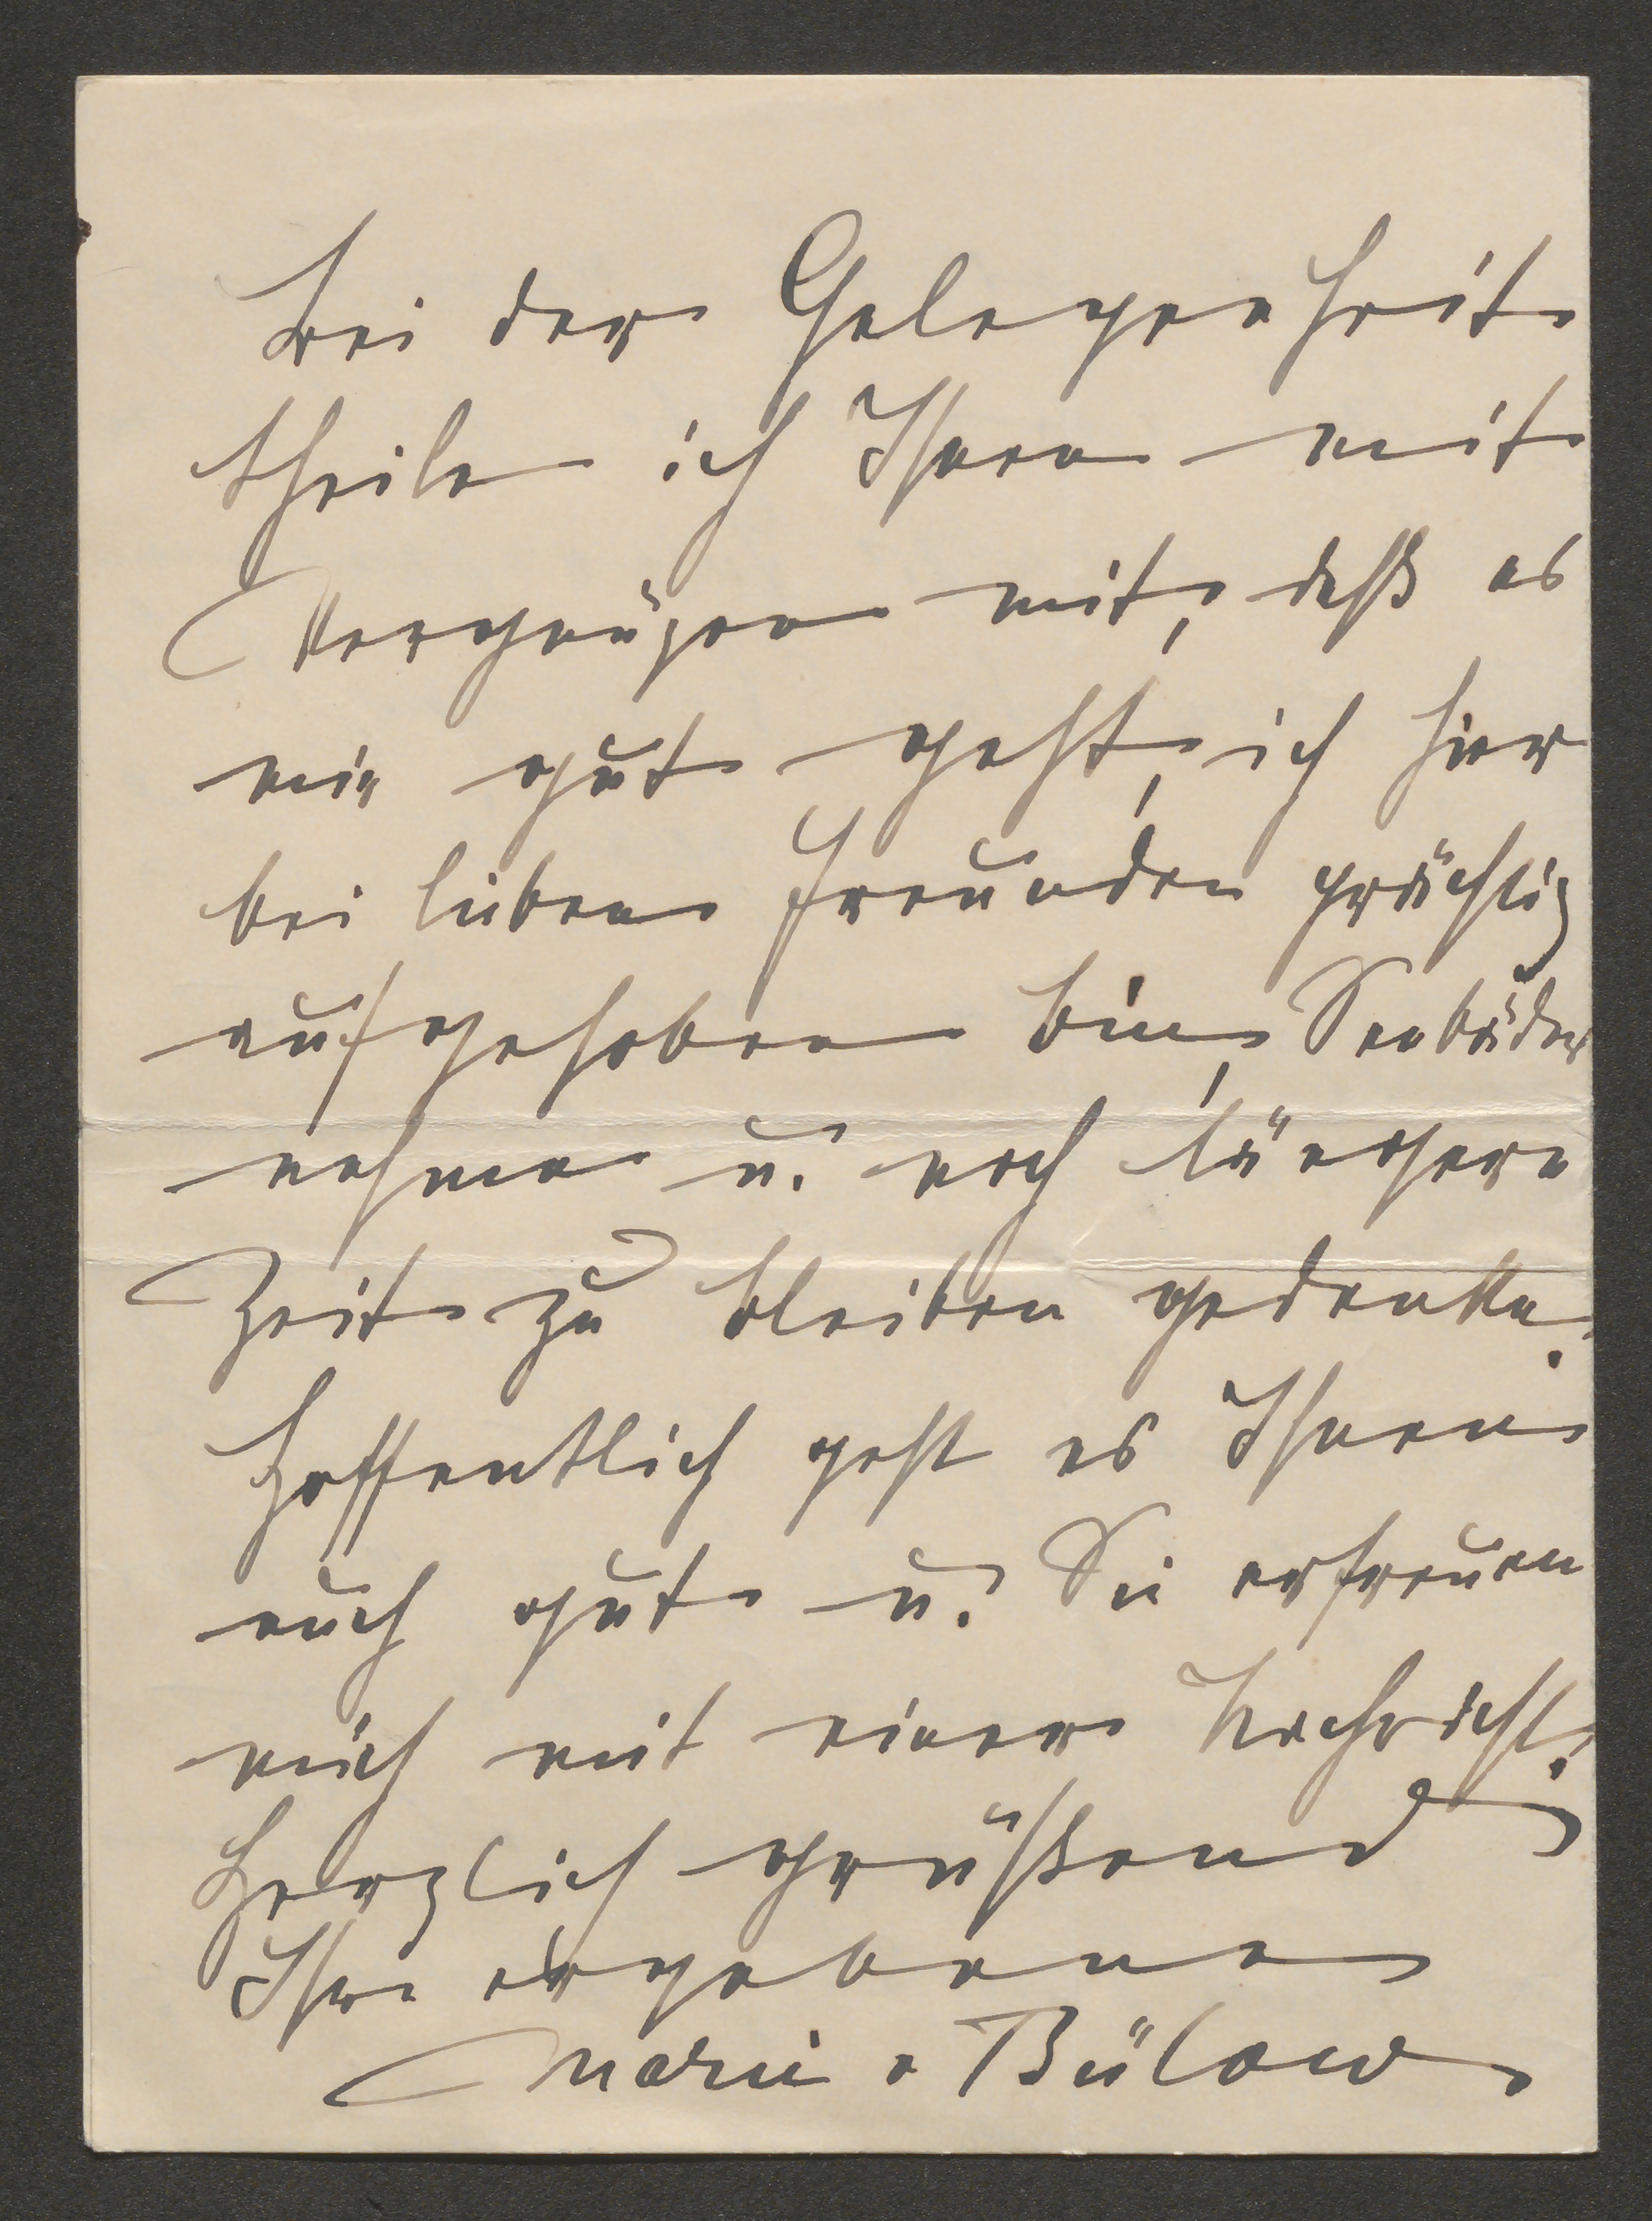 Bei der Gelegenheit
theile ich Ihnen mit
Vergnügen mit, daß es
mir gut geht, ich hier
bei lieben Freunden prächtig
aufgehoben bin, Seebäder
nehme u. noch längere
Zeit zu bleiben gedenke.
Hoffentlich geht es Ihnen
auch gut u. Sie erfreuen
mich mit einer Nachricht.
Herzlich grüßend
Ihre ergebene
Marie v Bülow